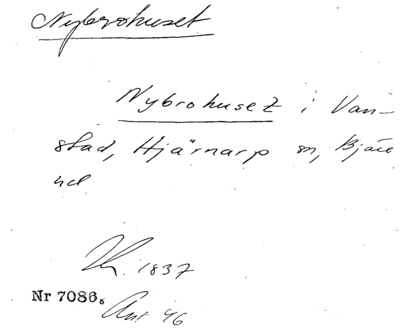 Nybrohuset
Nybrohuset i Van-
stad, Hjärnarp sn, Bjäre
hd
1837
Nr 7086.
Ant 46